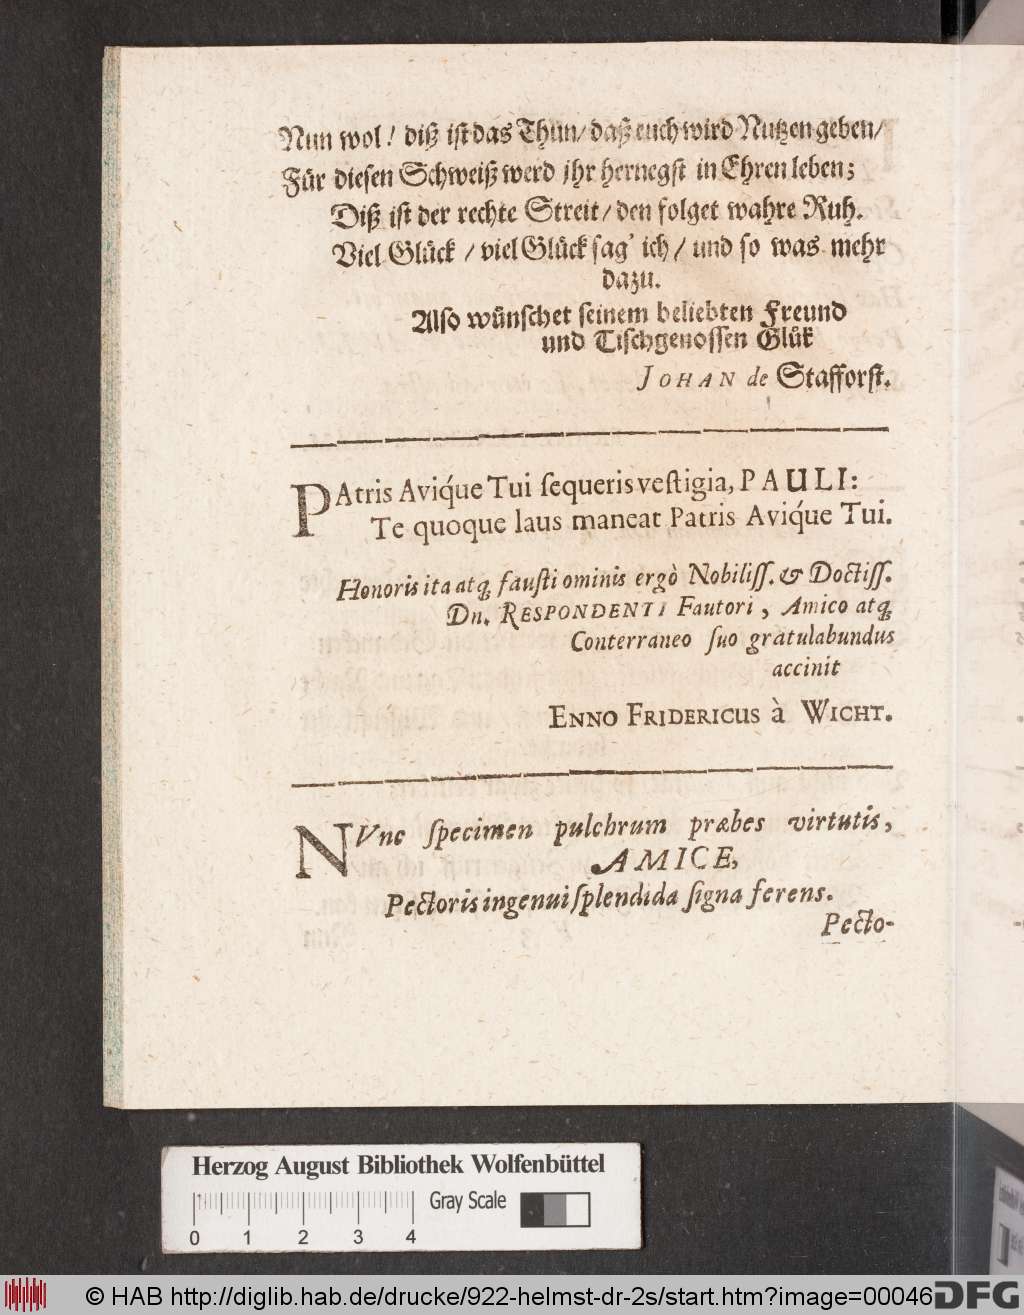 Nun wol! diß ist das Thun/ daß euch wird Nutzen geben/
Für diesen Schweiß werd jhr hernegst in Ehren leben;
Diß ist der rechte Streit/ den folget wahre Ruh.
Viel Glück/ viel Glück sag' ich/ und so was mehr
dazu.
Also wünschet seinem beliebten Freund
und Tischgenossen Glük
JOHAN de Stafforst.
PAtris Aviq́ue Tui sequeris vestigia, PAULI:
Te quoque laus maneat Patris Aviq́ue Tui.
Honoris ita atq; fausti ominis ergò Nobiliss. & Doctiss.
Dn. RESPONDENTI Fautori, Amico atq;
Conterraneo suo gratulabundus
accinit
ENNO FRIDERICUS à WICHT.
NVnc specimen pulchrum præbes virtutis,
AMICE,
Pectoris ingenui splendida signa ferens.
Pecto-
Herzog August Bibliothek Wolfenbüttel
Gray Scale
0 1 2 3 4
© HAB http://diglib.hab.de/drucke/922-helmst-dr-2s/start.htm?image=00046
DFG